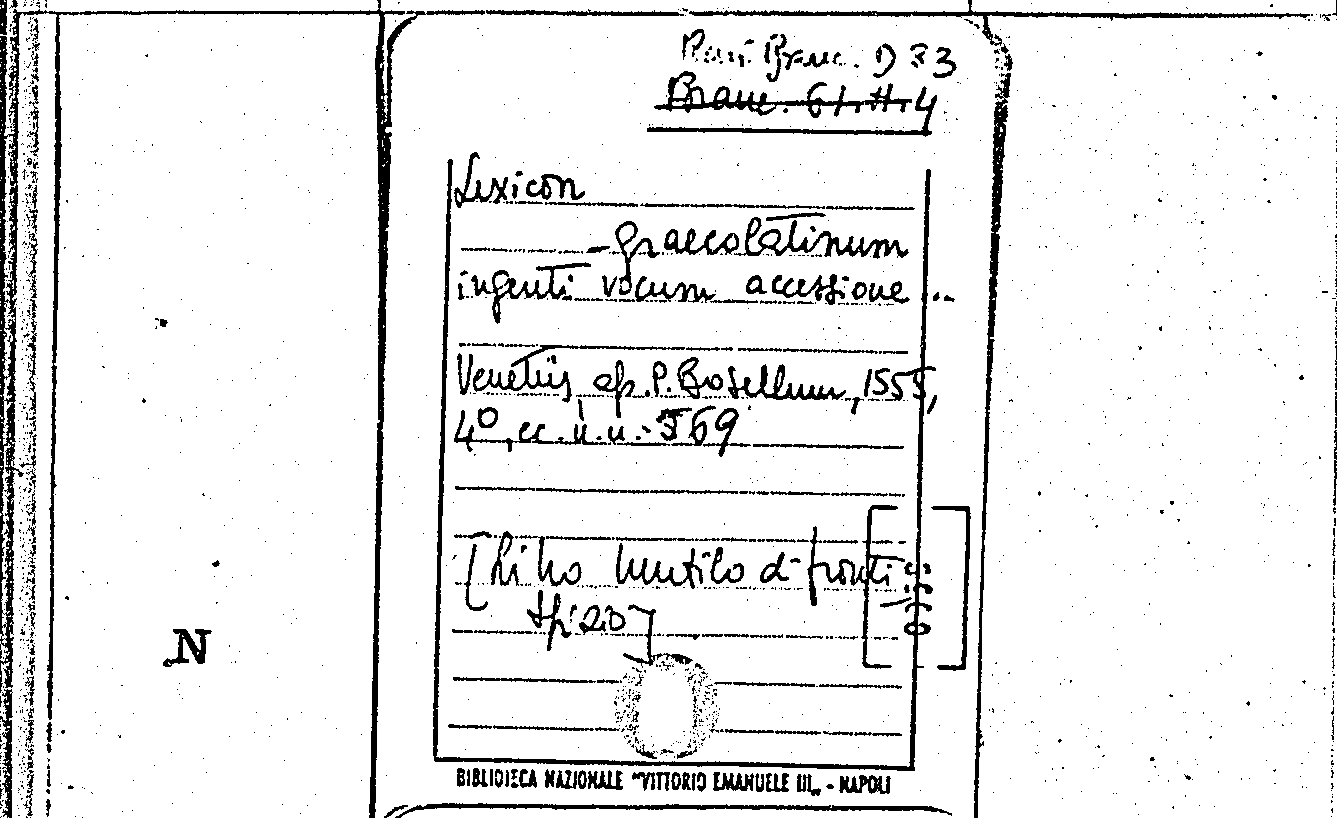 Rari Branc. D 33
Branc. 61.H.4
Lexicon
- graecolatinum
ingenti vocum accessione ...
Venetiis, ap. P. Bosellum, 1555,
4º, cc. n.n. 569
[Ritto mutilo di fronti
spizio]
N
BIBLIOTECA NAZIONALE "VITTORIO EMANUELE III" - NAPOLI